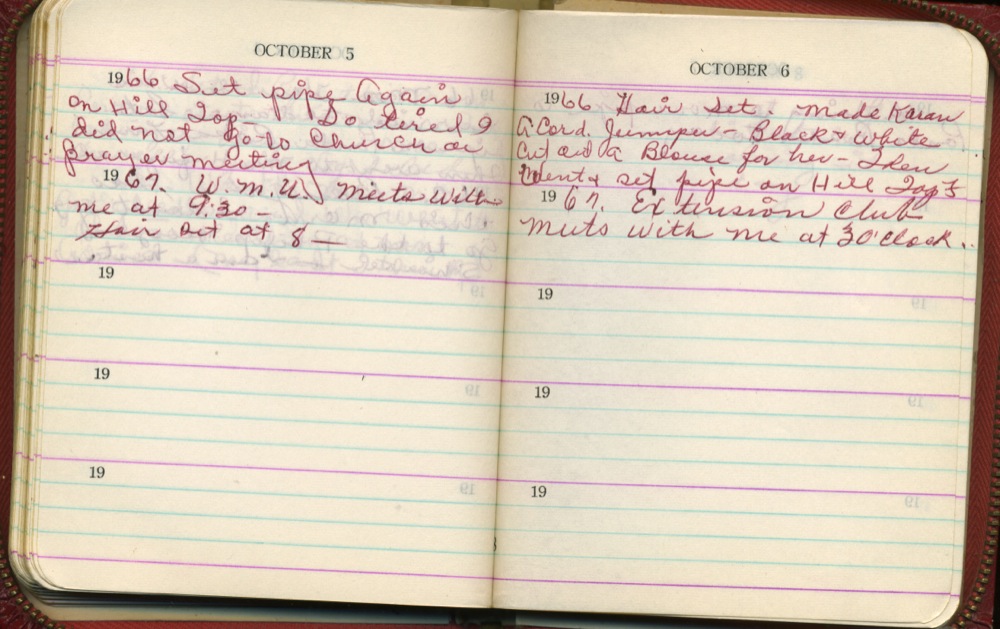 OCTOBER 5
1966 Set pipe Again
on Hill Top - So tired I
did not go to Church or
prayer meeting
1967. W.M.U. Meets With
me at 9:30 -
Hair set at 8 —
19
19
19
OCTOBER 6
1966 Hair Set. Made Karan
A Cord. Jumper - Black & White
Cut out a Blouse for her - Then
Went & set pipe on Hill Top
1967. Extension Club
Meets with me at 3 O'Clock.
19
19
19